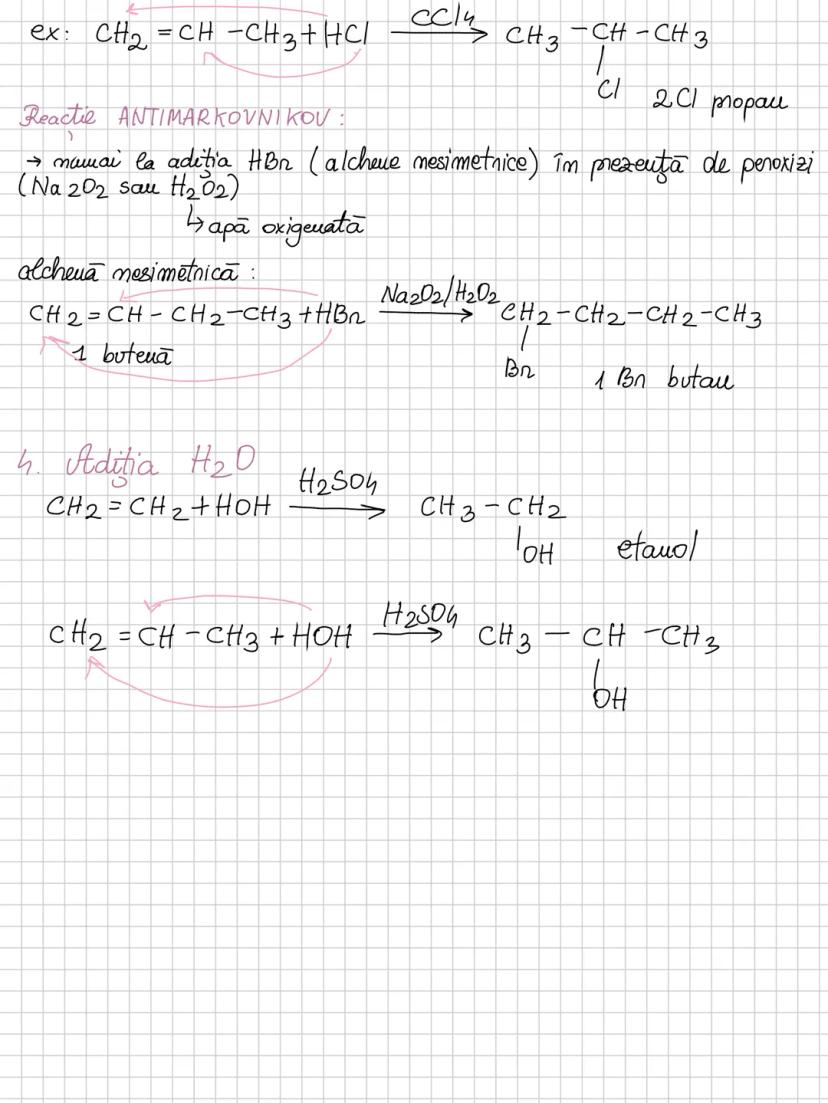 ex: CH2 = CH - CH3 + HCl → CCl4 CH3 - CH - CH3
Cl 2Cl propan
Reacție ANTIMARKOVNIKOV:
→ numai la adiția HBr (alchene nesimetrice) în prezență de peroxizi
(Na2O2 sau H2O2)
↳ apă oxigenată
alchenă nesimetrică:
CH2 = CH - CH2 - CH3 + HBr → Na2O2/H2O2 CH2 - CH2 - CH2 - CH3
1 butenă Br 1 Br butan
4. Adiția H2O
CH2 = CH2 + HOH → H2SO4 CH3 - CH2
OH etanol
CH2 = CH - CH3 + HOH → H2SO4 CH3 - CH - CH3
OH